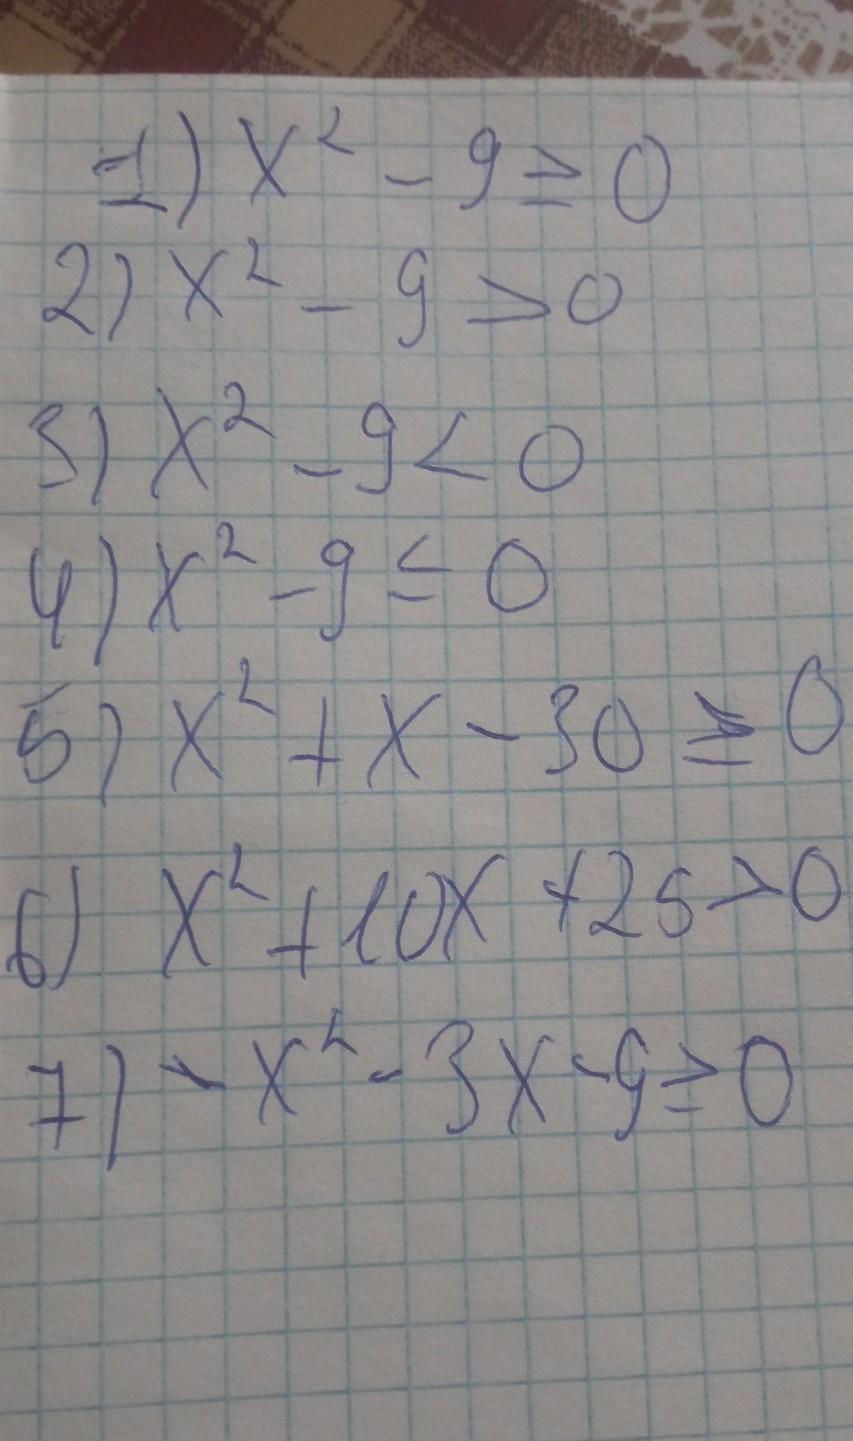 1) x² - 9 ≥ 0
2) x² - 9 > 0
3) x² - 9 < 0
4) x² - 9 ≤ 0
5) x² + x - 30 ≥ 0
6) x² + 10x + 25 > 0
7) - x² - 3x - 9 ≥ 0